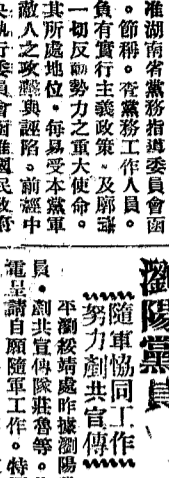 准湖南省黨務指導委員會函
。節稱。查黨務工作人員。
負有實行主義政策。及廓清
一切反動勢力之重大使命。
其所處地位。每易受本黨軍
敵人之攻襲與誣陷。前經中
央執行委員會咨准國民政府
瀏陽黨員
隨軍協同工作
努力剷共宣傳
平瀏綏靖處昨據瀏陽
員。剷共宣傳隊莊魯等。
電呈請自願隨軍工作。特